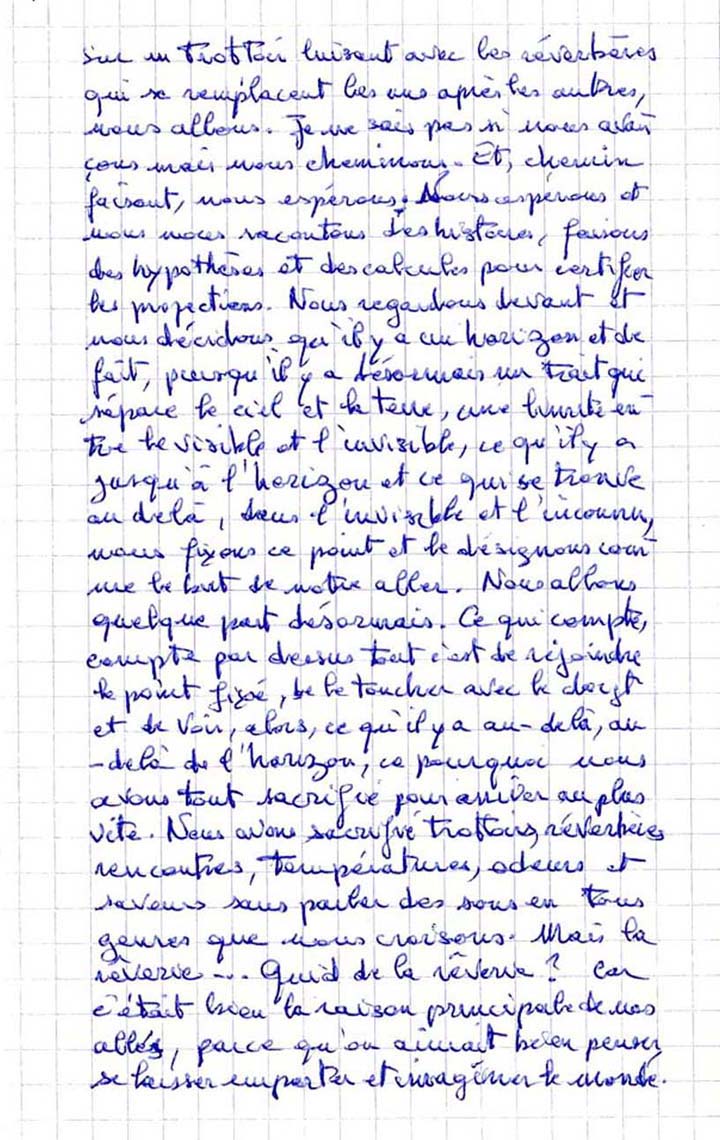 Sur un trottoir luisant avec les réverbères
qui se remplacent les uns après les autres,
nous allons. Je ne sais pas si nous avan
çons mais nous cheminons. Et, chemin
faisant, nous espérons. Nous espérons et
nous nous racontons des histoires, faisons
des hypothèses et des calculs pour certifier
les projections. Nous regardons devant et
nous décidons qu'il y a un horizon et de
fait, puisqu'il y a désormais un trait qui
sépare le ciel et la terre, une limite en
tre le visible et l'invisible, ce qu'il y a
jusqu'à l'horizon et ce qui se trouve
au delà, dans l'invisible et l'inconnu,
nous fixons ce point et le désignons com
me le but de notre aller. Nous allons
quelque part désormais. Ce qui compte,
compte par dessus tout c'est de rejoindre
le point fixé, de le toucher avec le doigt
et de voir, alors, ce qu'il y a au-delà, au
-delà de l'horizon, ce pourquoi nous
avons tout sacrifié pour arriver au plus
vite. Nous avons sacrifié trottoirs, réverbères
rencontres, températures, odeurs et
saveurs sans parler des sons en tous
genres que nous croisons. Mais la
rêverie... Quid de la rêverie ? Car
c'était bien la raison principale de nos
allés, parce qu'on aimait bien penser,
se laisser emporter et imaginer le monde.